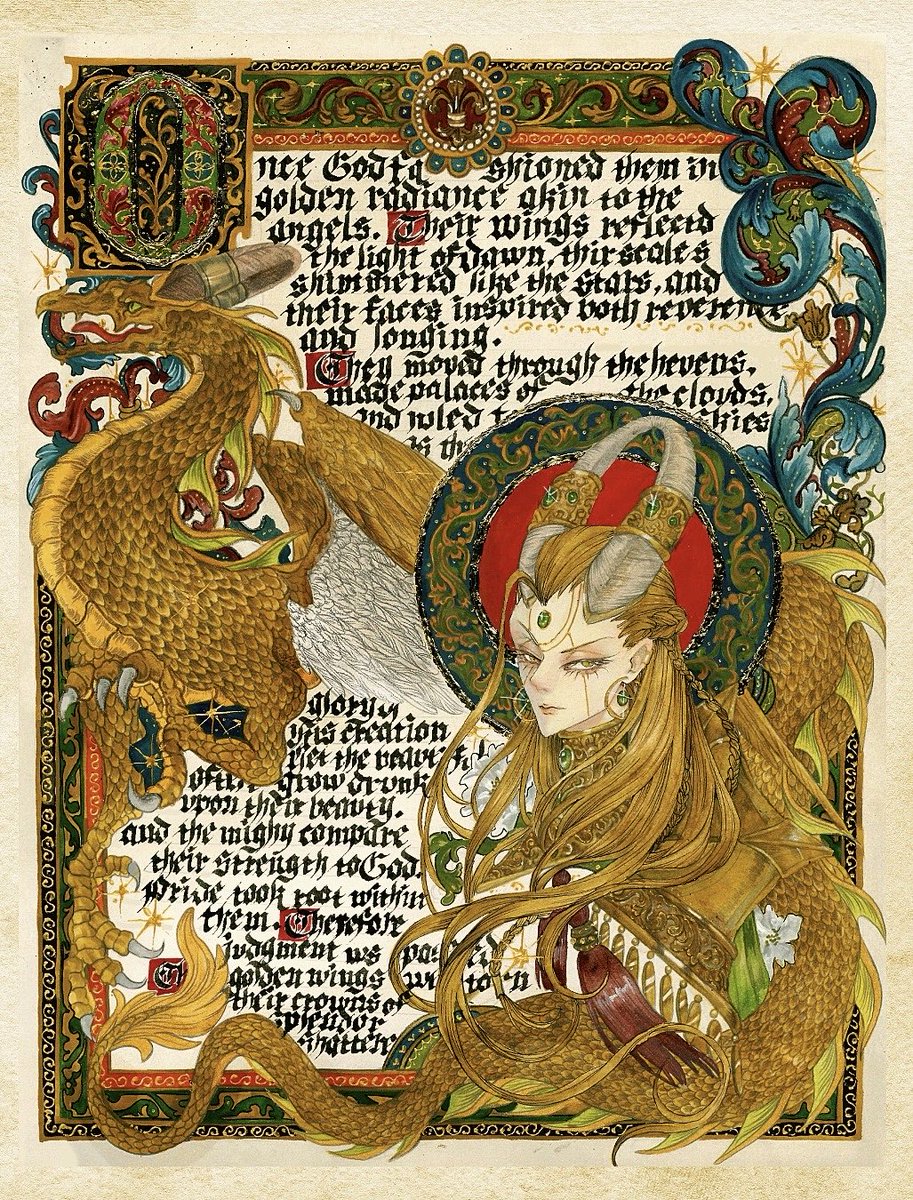 Once God fa shioned them in
golden radiance akin to the
angels. Their wings reflectd
the light of dawn, thir scales
shimmered like the stars, and
their faces inspired both reverence
and longing.
They moved through the hevens,
made palaces of the clouds,
and ruled skies
glory
His creation
Yet the
grow drunk
upon their beauty.
and the mighy compare
their strength to God.
Pride took root within
them. Therefore
judgment ws pas
golden wings torn
their crowns of
splendor
shattere